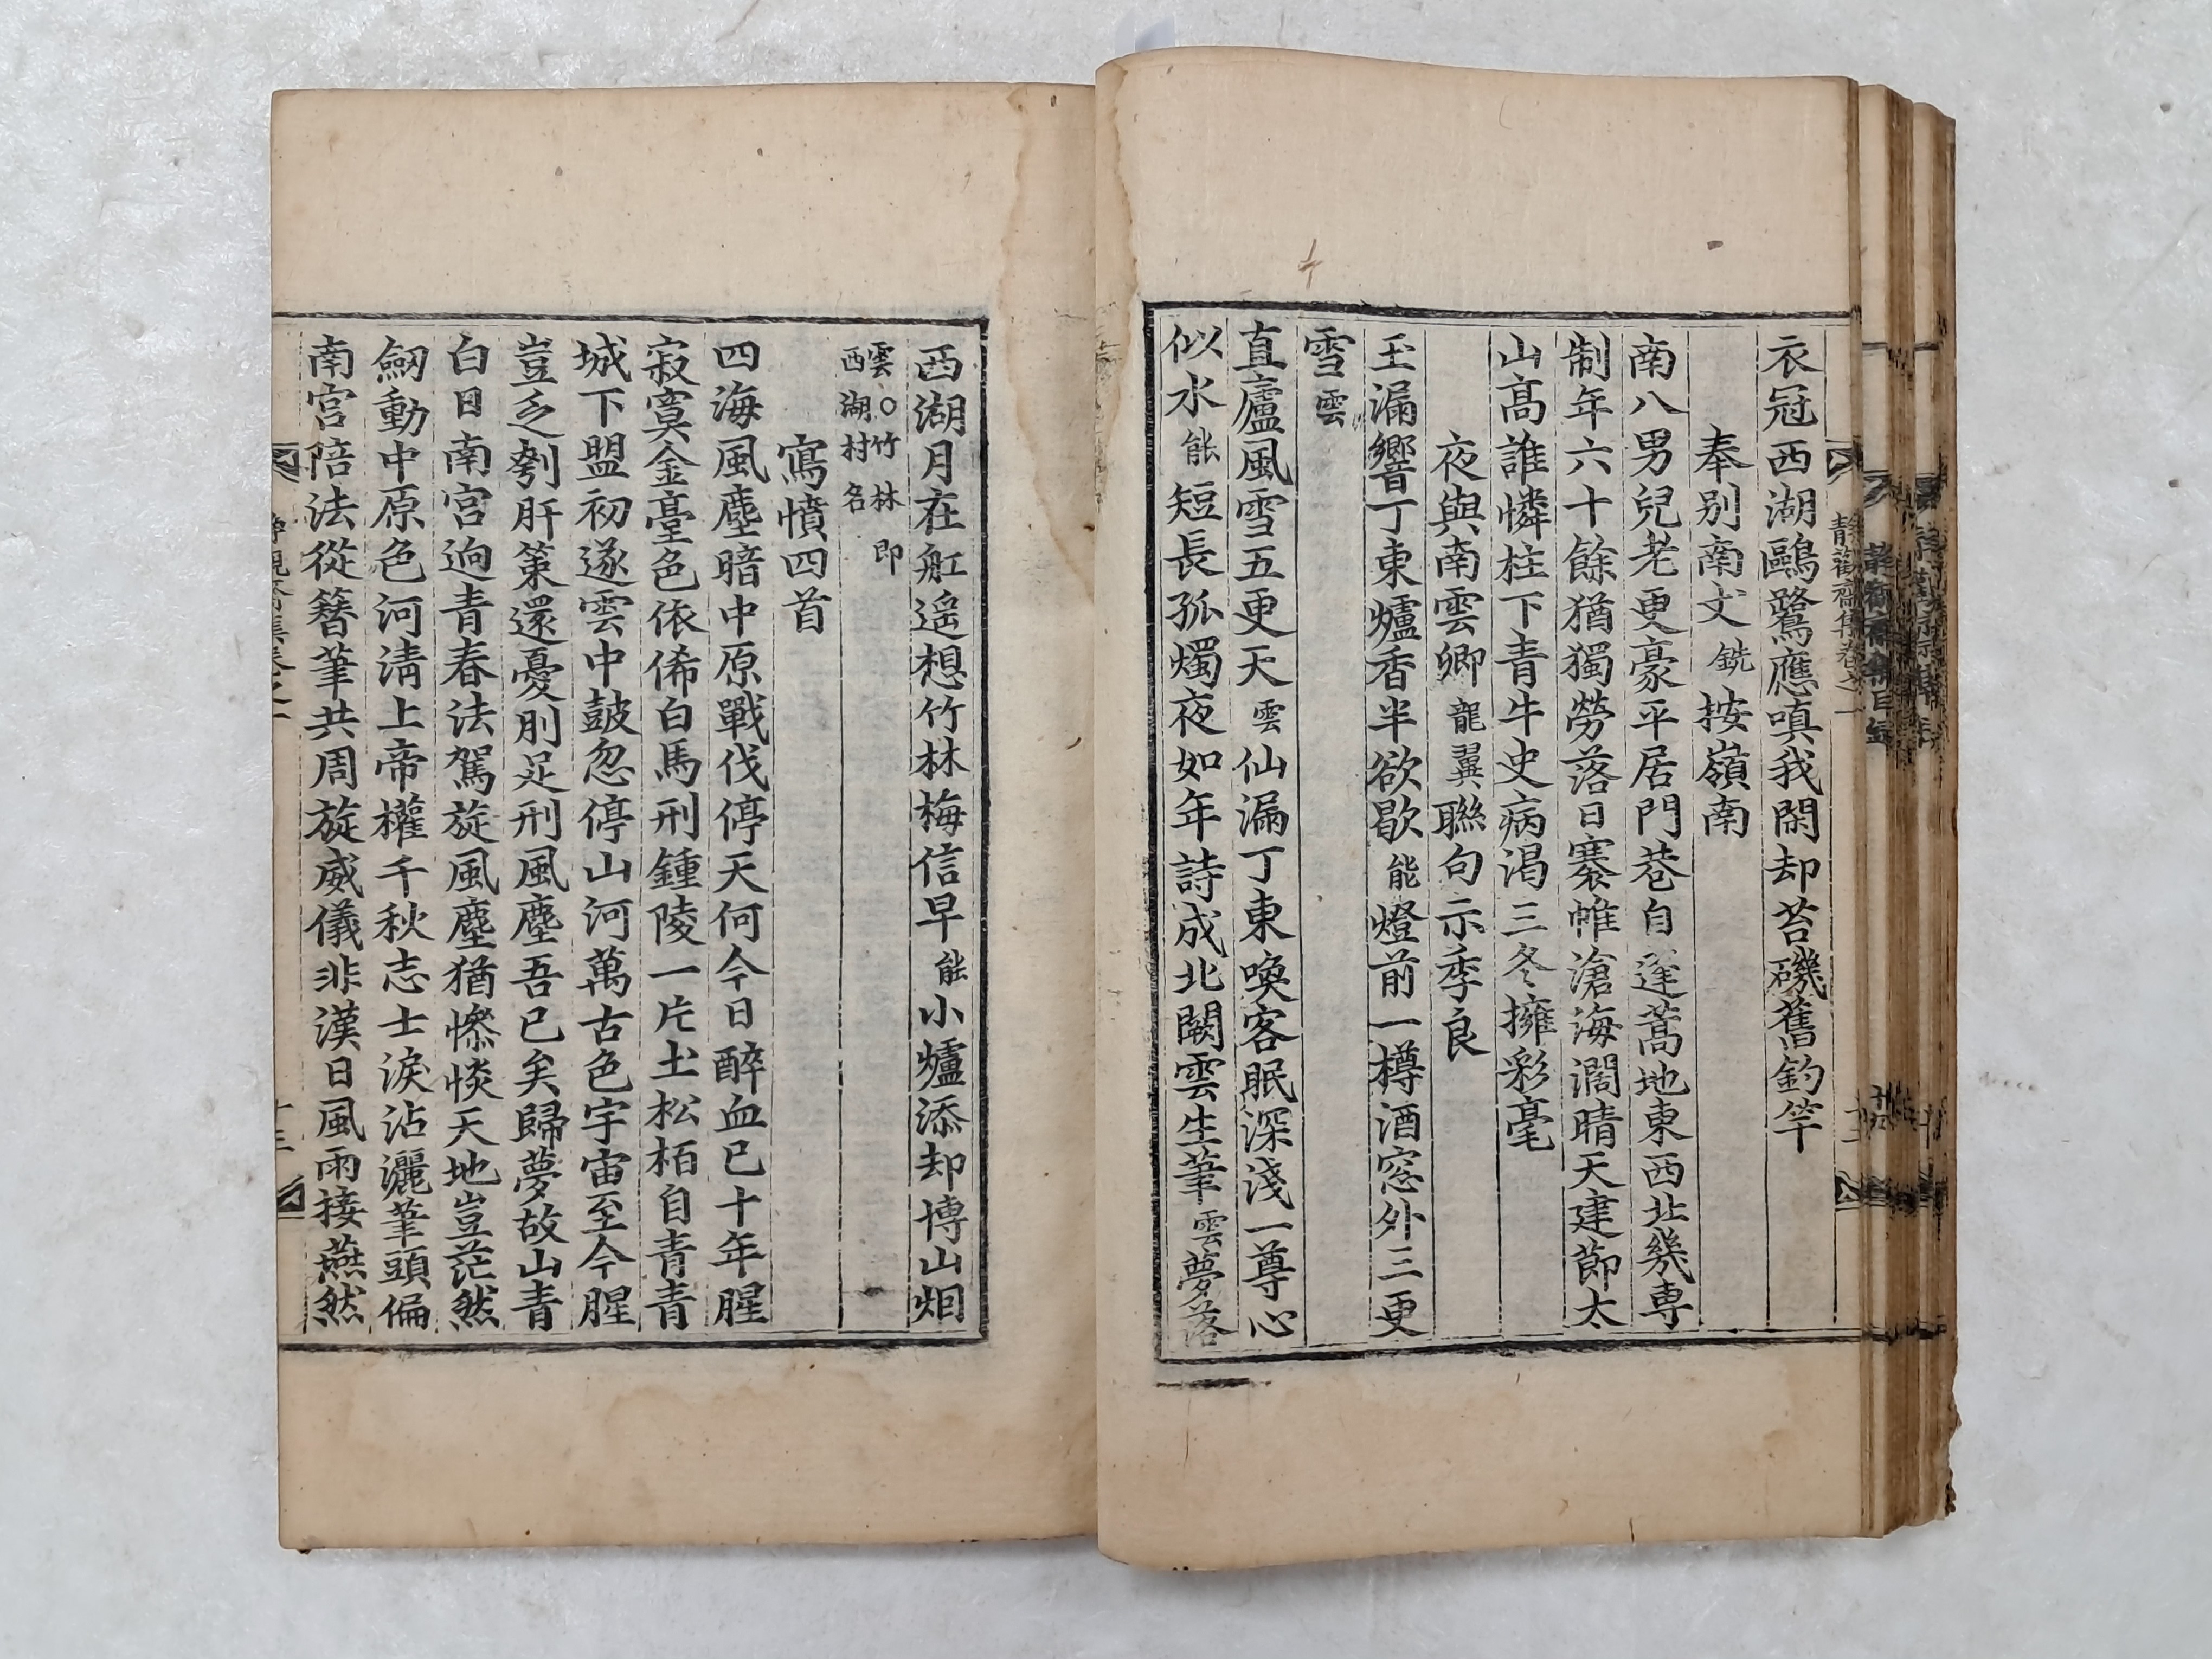 衣冠西湖鷗鷺應嗔我閑却苔磯舊釣竿
奉别南丈銑按嶺南
南八男兒老更豪平居門巷自蓬蒿地東西北幾專
制年六十餘猶獨勞落日褰帷滄海濶晴天建節太
山高誰憐柱下青牛史病渴三冬擁彩毫
夜與南雲卿龍翼聯句示季良
玉漏響丁東爐香半欲歇能燈前一樽酒窓外三更
雪雲
直廬風雪五更天雲仙漏丁東喚客眠深淺一尊心
似水能短長孤燭夜如年詩成北闕雲生筆雲夢落
靜觀齋集卷之一
十二
西湖月在舡遥想竹林梅信早能小爐添却博山烟
雲○竹林即
西湖村名
寫憤四首
四海風塵暗中原戰伐停天何今日醉血已十年腥
寂寞金臺色依俙白馬刑鍾陵一片土松栢自青青
城下盟初遂雲中鼓忽停山河萬古色宇宙至今腥
豈乏刳肝策還憂刖足刑風塵吾已矣歸夢故山青
白日南宮逈青春法駕旋風塵猶慘惔天地豈茫然
劒動中原色河淸上帝權千秋志士淚沾灑筆頭偏
南宮陪法從簪筆共周旋威儀非漢日風雨接燕然